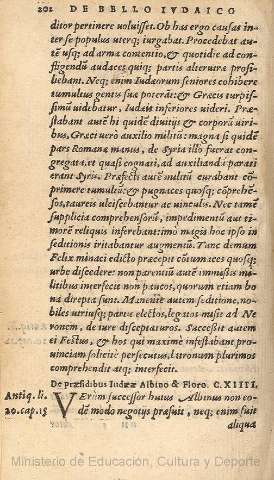 202 DE BELLO IVDAICO
ditor pertinere voluisset. Ob has ergo causas in-
ter se populus uterq; iurgabat. Procedebat au-
tē usq; ad arma contentio, & quotidie ad con-
fligendū audaces quiq; partis alterutræ prosi-
liebant. Neq; enim Iudæorum seniores cohibere
tumultus gentis suæ poterāt: & Græcis turpis-
simū uidebatur, Iudæis inferiores uideri. Præ-
stabant autē hi quidē diuitijs & corporū uiri-
bus, Græci uero auxilio militū: magna si quidē
pars Romanæ manus, de Syria illo fuerat con-
gregata, et quasi cognati, ad auxiliandū parati
erant Syris. Præfecti autē militū curabant cō-
primere tumultū: & pugnaces quosq; cōprehē-
sos, taureis ulciscebantur ac uinculis. Nec tamē
supplicia comprehensorū, impedimentū aut ti-
morē reliquis inferebant: imo magis hoc ipso in
seditionis iritabantur augmentū. Tunc demum
Felix minaci edicto præcepit cōtumaces quosq;
urbe discedere: non parentiū autē immissis mi-
litibus interfecit non paucos, quorum etiam bo
na direpta sunt. Manente autem seditione, no-
biles utriusq; partis electos, legatos misit ad Ne
ronem, de iure disceptaturos. Successit autem
ei Festus, & hos qui maxime infestabant pro-
uinciam solicite persecutus, latronum plurimos
comprehendit atq; interfecit.
De præsidibus Iudææ Albino & Floro. C. XIIII.
Antiq. li.
20. cap. 15
VErum successor huius Albinus non eo-
dē modo negotijs præfuit, neq; enim fuit
aliqua
Ministerio de Educación, Cultura y Deporte